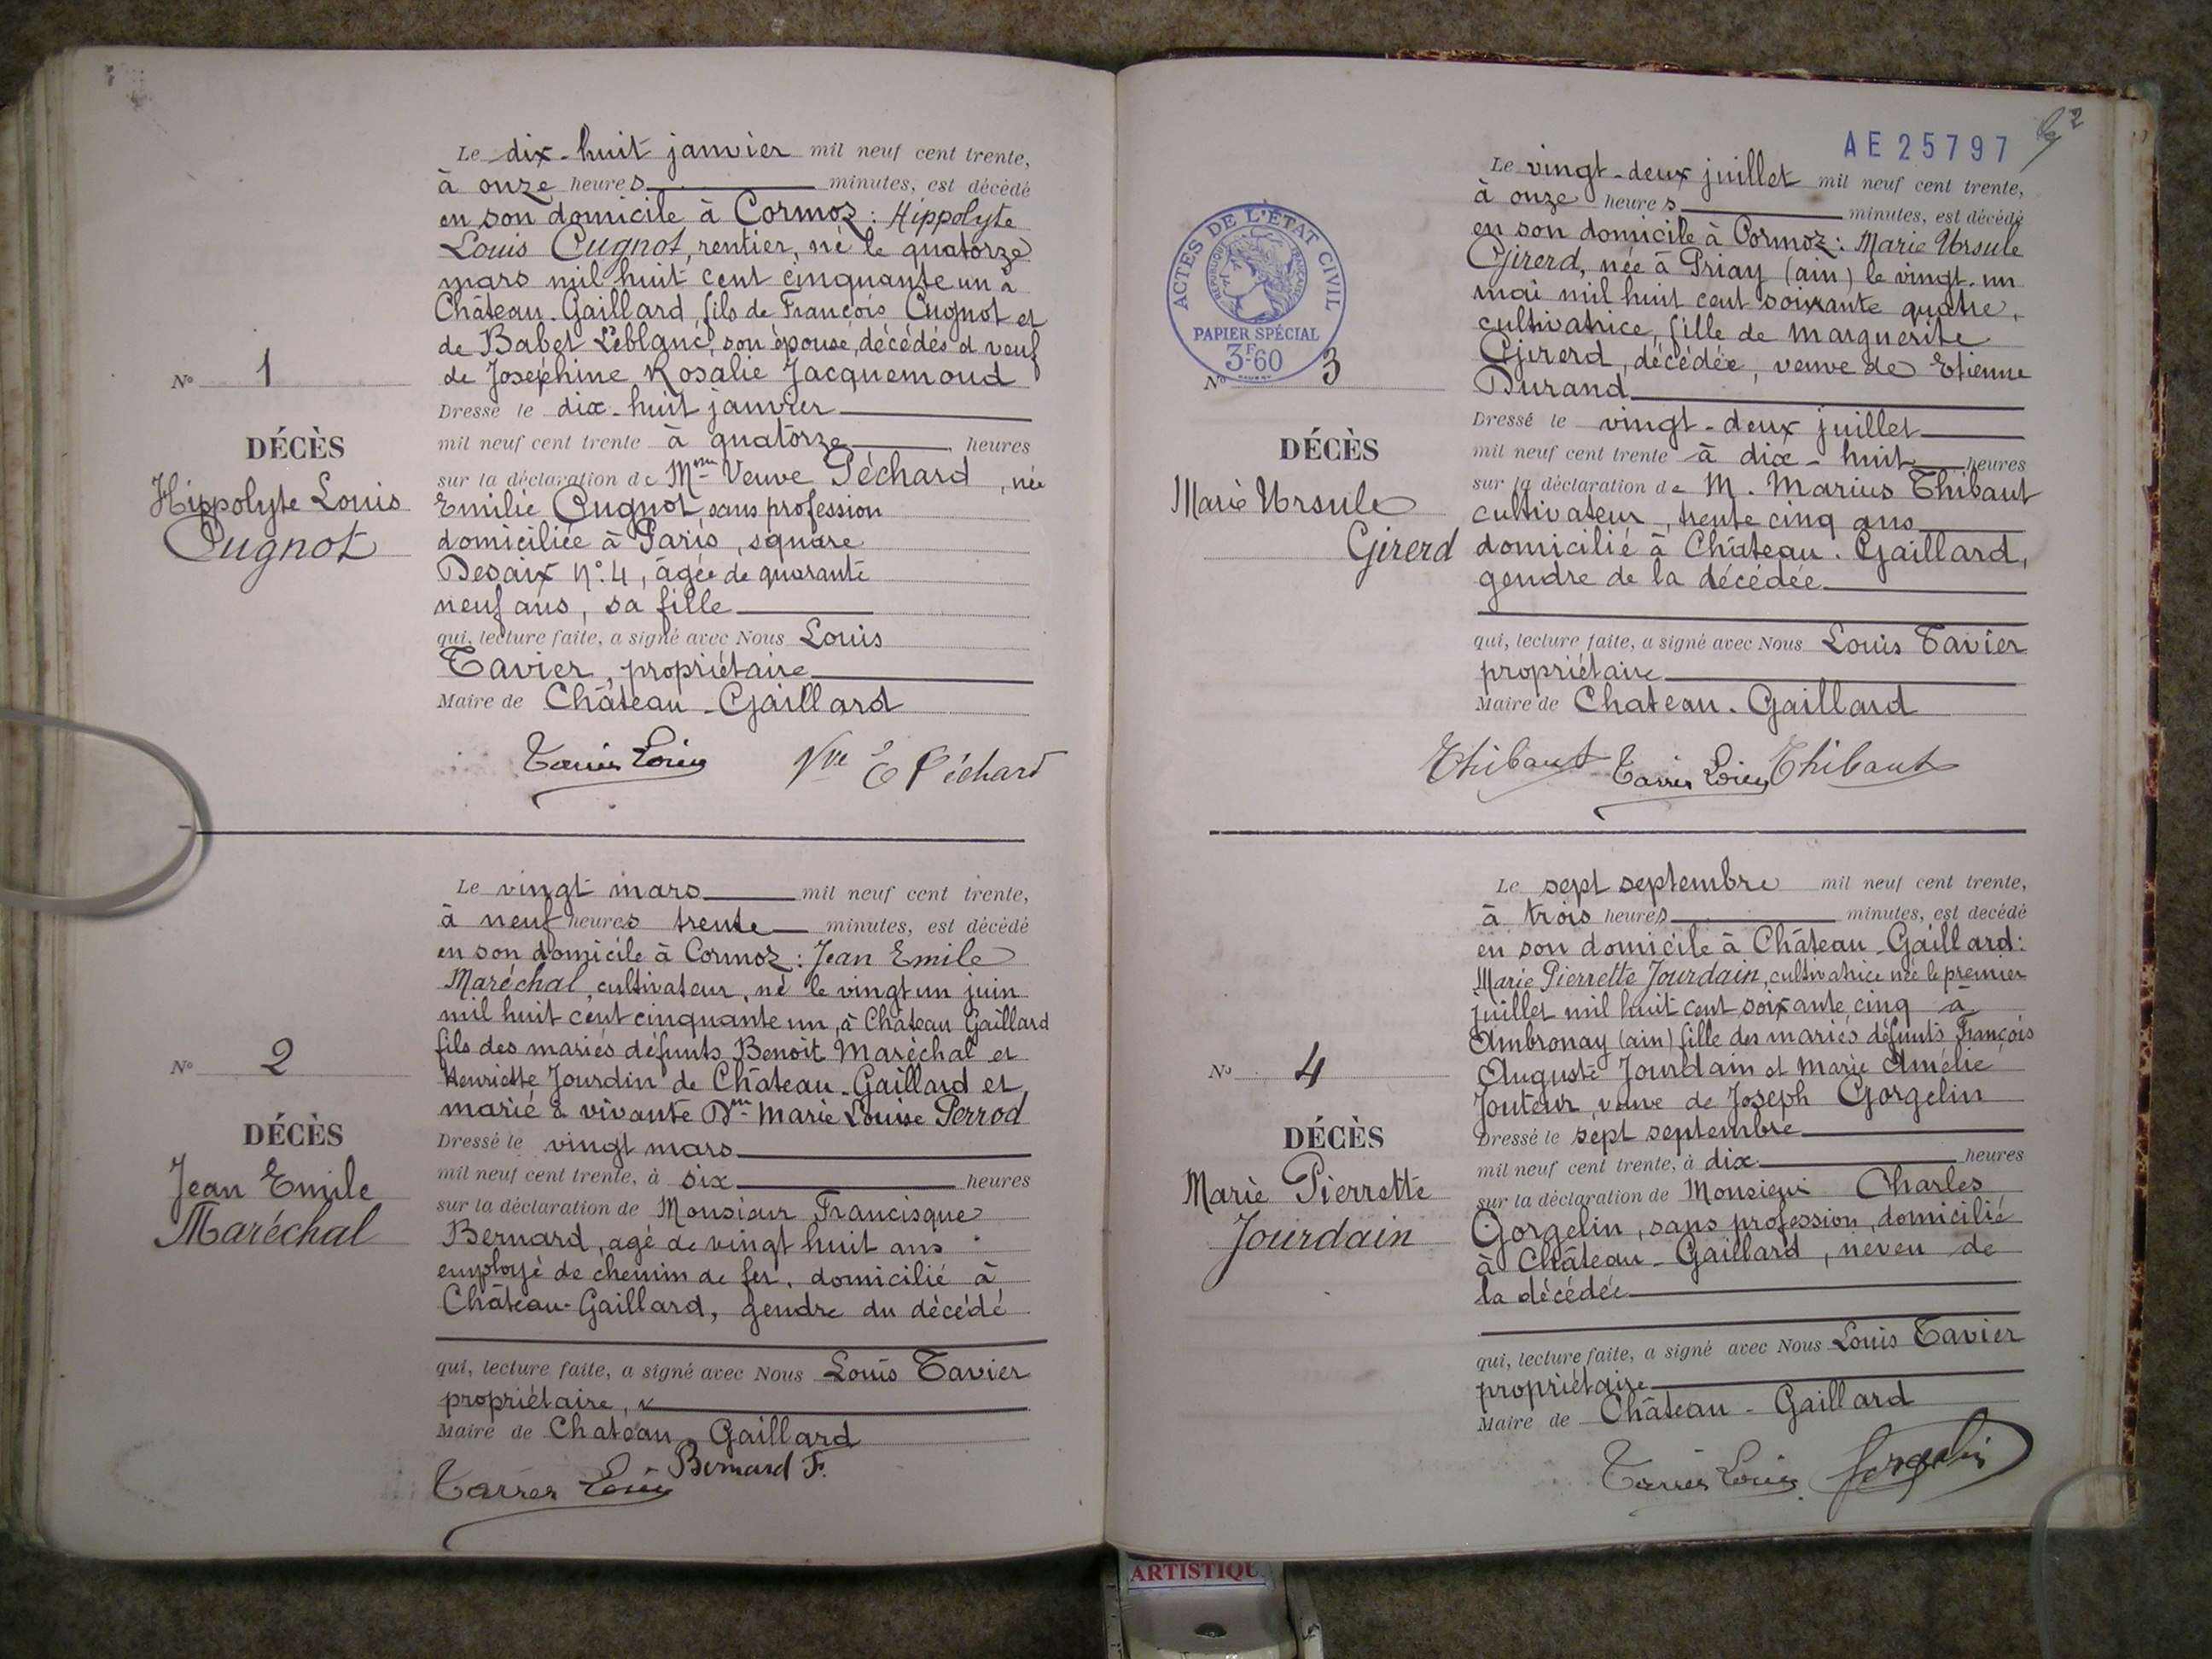 Le dix-huit janvier mil neuf cent trente,
à onze heures minutes, est décédé
en son domicile à Cormoz : Hippolyte
Louis Cugnot, rentier, né le quatorze
mars mil huit cent cinquante un à
Château-Gaillard, fils de François Cugnot et
de Babet Leblanc, son épouse, décédés et veuf
de Joséphine Rosalie Jacquemoud
N° 1
DÉCÈS
Hippolyte Louis
Cugnot
Dressé le dix-huit janvier
mil neuf cent trente à quatorze heures
sur la déclaration de Mme Veuve Péchard, née
Emilie Cugnot, sans profession
domiciliée à Paris, square
Desaix n° 4, âgée de quarante
neuf ans, sa fille
qui, lecture faite, a signé avec Nous Louis
Tavier, propriétaire
Maire de Château-Gaillard
Tavier Louis Vve E Péchard
Le vingt mars mil neuf cent trente,
à neuf heures trente minutes, est décédé
en son domicile à Cormoz : Jean Emile
Maréchal, cultivateur, né le vingt un juin
mil huit cent cinquante un, à Château Gaillard
fils des mariés défunts Benoît Maréchal et
Henriette Jourdin de Château-Gaillard et
marié à vivante Dme Marie Louise Perrod
N° 2
DÉCÈS
Jean Emile
Maréchal
Dressé le vingt mars
mil neuf cent trente, à six heures
sur la déclaration de Monsieur Francisque
Bernard, agé de vingt huit ans
employé de chemin de fer, domicilié à
Château-Gaillard, gendre du décédé
qui, lecture faite, a signé avec Nous Louis Tavier
propriétaire,
Maire de Chateau-Gaillard
Tavier Louis Bernard F.
AE 25797
ACTES DE L'ÉTAT CIVIL
RÉPUBLIQUE FRANÇAISE
PAPIER SPÉCIAL
3F60
Le vingt-deux juillet mil neuf cent trente,
à onze heures minutes, est décédé
en son domicile à Cormoz : Marie Ursule
Girerd, née à Priay (ain) le vingt-un
mai mil huit cent soixante quatre,
cultivatrice, fille de Marguerite
Girerd, décédée, veuve de Etienne
Durand
N° 3
DÉCÈS
Marie Ursule
Girerd
Dressé le vingt-deux juillet
mil neuf cent trente à dix-huit heures
sur la déclaration de M. Marius Thibaut
cultivateur, trente cinq ans
domicilié à Château-Gaillard,
gendre de la décédée
qui, lecture faite, a signé avec Nous Louis Tavier
propriétaire
Maire de Chateau-Gaillard
Thibaut Tavier Louis Thibaut
Le sept septembre mil neuf cent trente,
à trois heures minutes, est decédé
en son domicile à Château-Gaillard :
Marie Pierrette Jourdain, cultivatrice née le premier
juillet mil huit cent soixante cinq à
Ambronay (ain) fille des mariés défunts François
Auguste Jourdain et Marie Amélie
Jouteur, veuve de Joseph Gorgelin
N° 4
DÉCÈS
Marie Pierrette
Jourdain
Dressé le sept septembre
mil neuf cent trente, à dix heures
sur la déclaration de Monsieur Charles
Gorgelin, sans profession, domicilié
à Château-Gaillard, neveu de
la décédée
qui, lecture faite, a signé avec Nous Louis Tavier
propriétaire
Maire de Château-Gaillard
Tavier Louis Gorgelin
ARTISTIQU